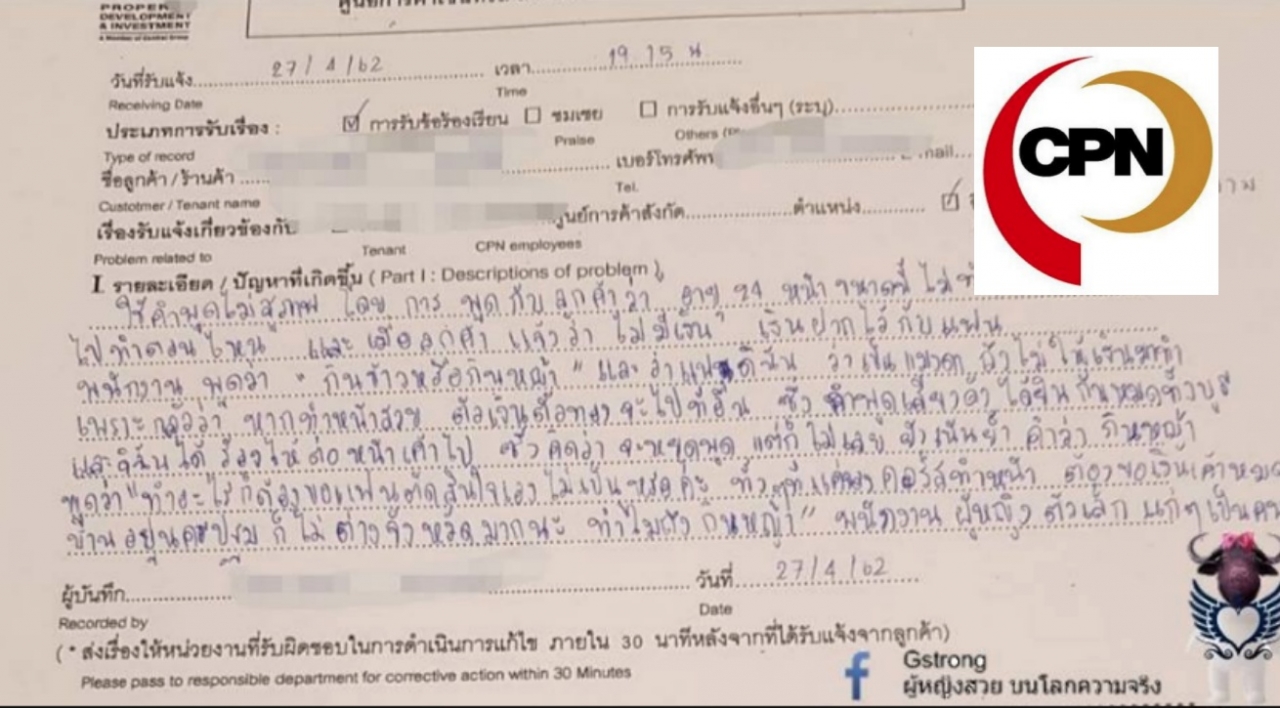 PROPER
DEVELOPMENT
& INVESTMENT
A Member of Central Group
CPN
วันที่รับแจ้ง 27/4/62 เวลา 19.15 น
Receiving Date Time
ประเภทการรับเรื่อง : ☑ การรับข้อร้องเรียน ☐ ชมเชย ☐ การรับแจ้งอื่นๆ (ระบุ)
Type of record Praise Others
ชื่อลูกค้า / ร้านค้า เบอร์โทรศัพท
Custotmer / Tenant name Tel.
เรื่องรับแจ้งเกี่ยวข้องกับ ศูนย์การค้าสังกัด ตำแหน่ง
Problem related to Tenant CPN employees
I รายละเอียด / ปัญหาที่เกิดขึ้น ( Part I : Descriptions of problem )
ใช้คำพูดไม่สุภาพ โดย การ พูดกับลูกค้าว่า อายุ 24 หน้าขนาดนี้ ไม่
ไปทำตอนไหน" และเมื่อลูกค้า แจ้งว่า ไม่มีเงิน" เงินฝากไว้กับแฟน
พนักงาน พูดว่า "กินข้าวหรือกินหญ้า" และว่าแฟนดิฉัน ว่าเป็นแมงดา ถึงไม่ให้เงินมาทำ
เพราะกลัวว่า หากทำหน้าสวย จะไปที่อื่น ซึ่ง คำพูด ได้ยินกันหมดทั้งบูธ
และดิฉันได้ ร้องไห้ต่อหน้าเค้าไป ซึ่งคิดว่า จะหยุดพูด แต่ก็ไม่เลย ยังเน้นย้ำ คำว่า กินหญ้า
พูดว่า "ทำอะไรก็ต้องขอแฟนตัดสินใจเองไม่เป็นหรอค่ะ คอร์สทำหน้า ต้องขอเงินเค้าหมด
บ้านอยู่นครปฐม ก็ไม่ต่างจังหวัดมากนะ ทำไมถึงกินหญ้า" พนักงาน ผู้หญิง ตัวเล็ก แก่ๆ เป็นคน
ผู้บันทึก วันที่ 27/4/62
Recorded by Date
( * ส่งเรื่องให้หน่วยงานที่รับผิดชอบในการดำเนินการแก้ไข ภายใน 30 นาทีหลังจากที่ได้รับแจ้งจากลูกค้า)
Please pass to responsible department for corrective action within 30 Minutes
Gstrong
ผู้หญิงสวย บนโลกความจริง